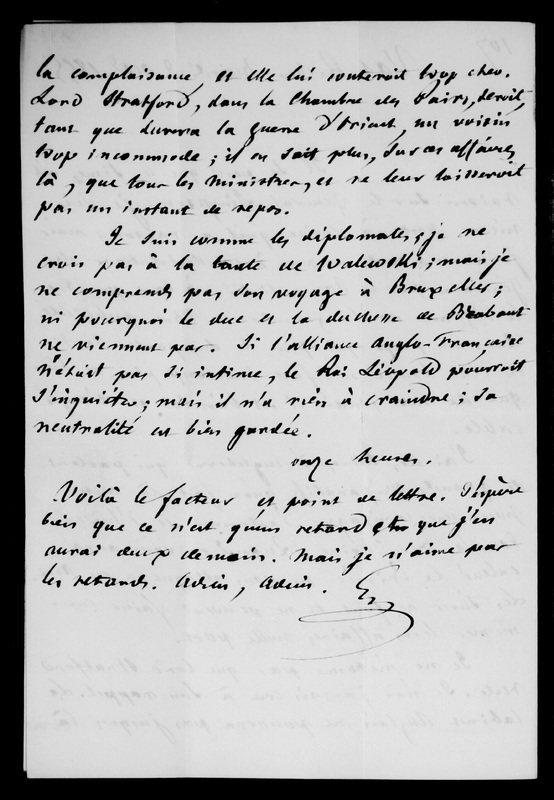 la complaisance, et elle lui couteroit trop cher.
Lord Stratford, dans la Chambre des Pairs, seroit,
tant que durera la guerre d'Orient, un voisin
trop incommode ; il en sait plus, sur ces affaires
là, que tous les ministres, et ne leur laisseroit
pas un instant de repos.
Je suis comme les diplomates ; je ne
crois pas à la de Walewski ; mais je
ne comprends pas son voyage à Bruxelles ;
ni pourquoi le duc et la duchesse de Brabant
ne viennent pas. Si l'alliance Anglo-Française
n'étoit pas si intime, le Roi Léopold pourroit
s'inquiéter ; mais il n'a rien à craindre ; sa
neutralité est bien gardée.
onze heures.
Voilà le facteur et point de lettre. J'espère
bien que ce n'est qu'un retard et que j'en
aurai deux demain. Mais je n'aime pas
les retards. Adieu, Adieu.